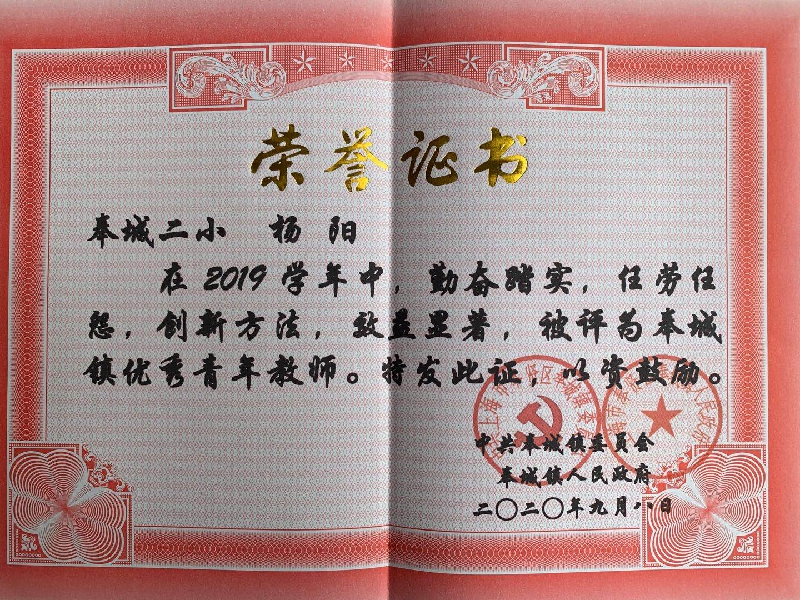 荣誉证书
奉城二小 杨阳
在2019学年中，勤奋踏实，任劳任
怨，创新方法，效益显著，被评为奉城
镇优秀青年教师。特发此证，以资鼓励。
中共奉城镇委员会
奉城镇人民政府
二〇二〇年九月八日